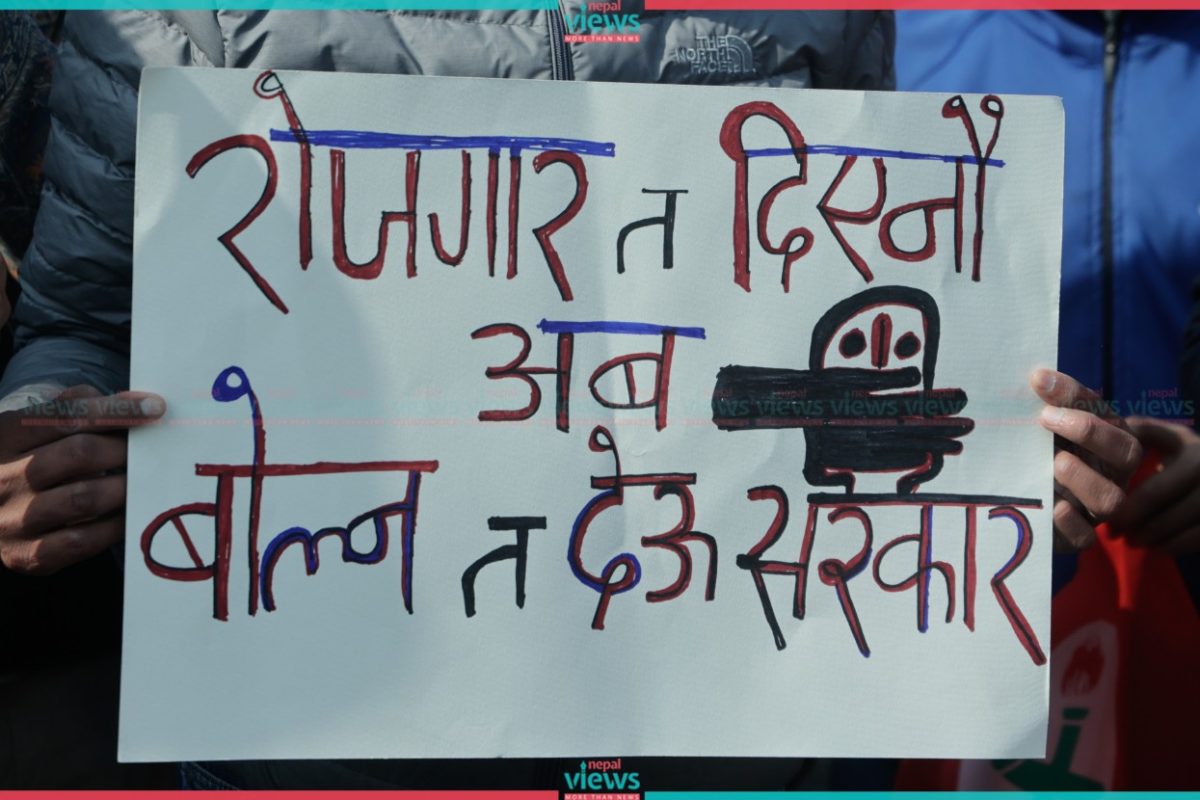 nepal
views
MORE THAN NEWS
THE
NORTH
FACE
रोजगार त दिएनौ
अब
बोल्न त देऊ सरकार
nepal
views
MORE THAN NEWS